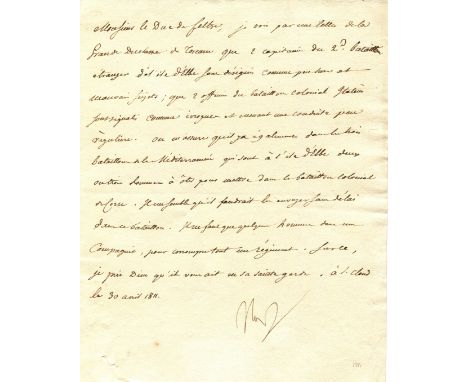 Monsieur le Duc de Feltre, je vois par une lettre de la
Grande Duchesse de Toscane que 2 capitaines du 2d. bataillon
étranger à l'isle d'Elbe sont désignés comme
mauvais sujets; que 2 officiers du bataillon colonial Italien
sont signalés comme ivrognes et menant une conduite peu
régulière. On m'assure qu'il y a également dans le
bataillon de la Méditerranée qui sont à l'isle d'Elbe deux
ou trois hommes à ôter pour mettre dans le bataillon colonial
de Corse. Il me semble qu'il faudrait les envoyer sans délai
dans ce bataillon. Il ne faut que quelques hommes dans une
Compagnie, pour corrompre tout un régiment. Sur ce,
je prie Dieu qu'il vous ait en sa sainte garde, à St. Cloud
le 30 avril 1811.